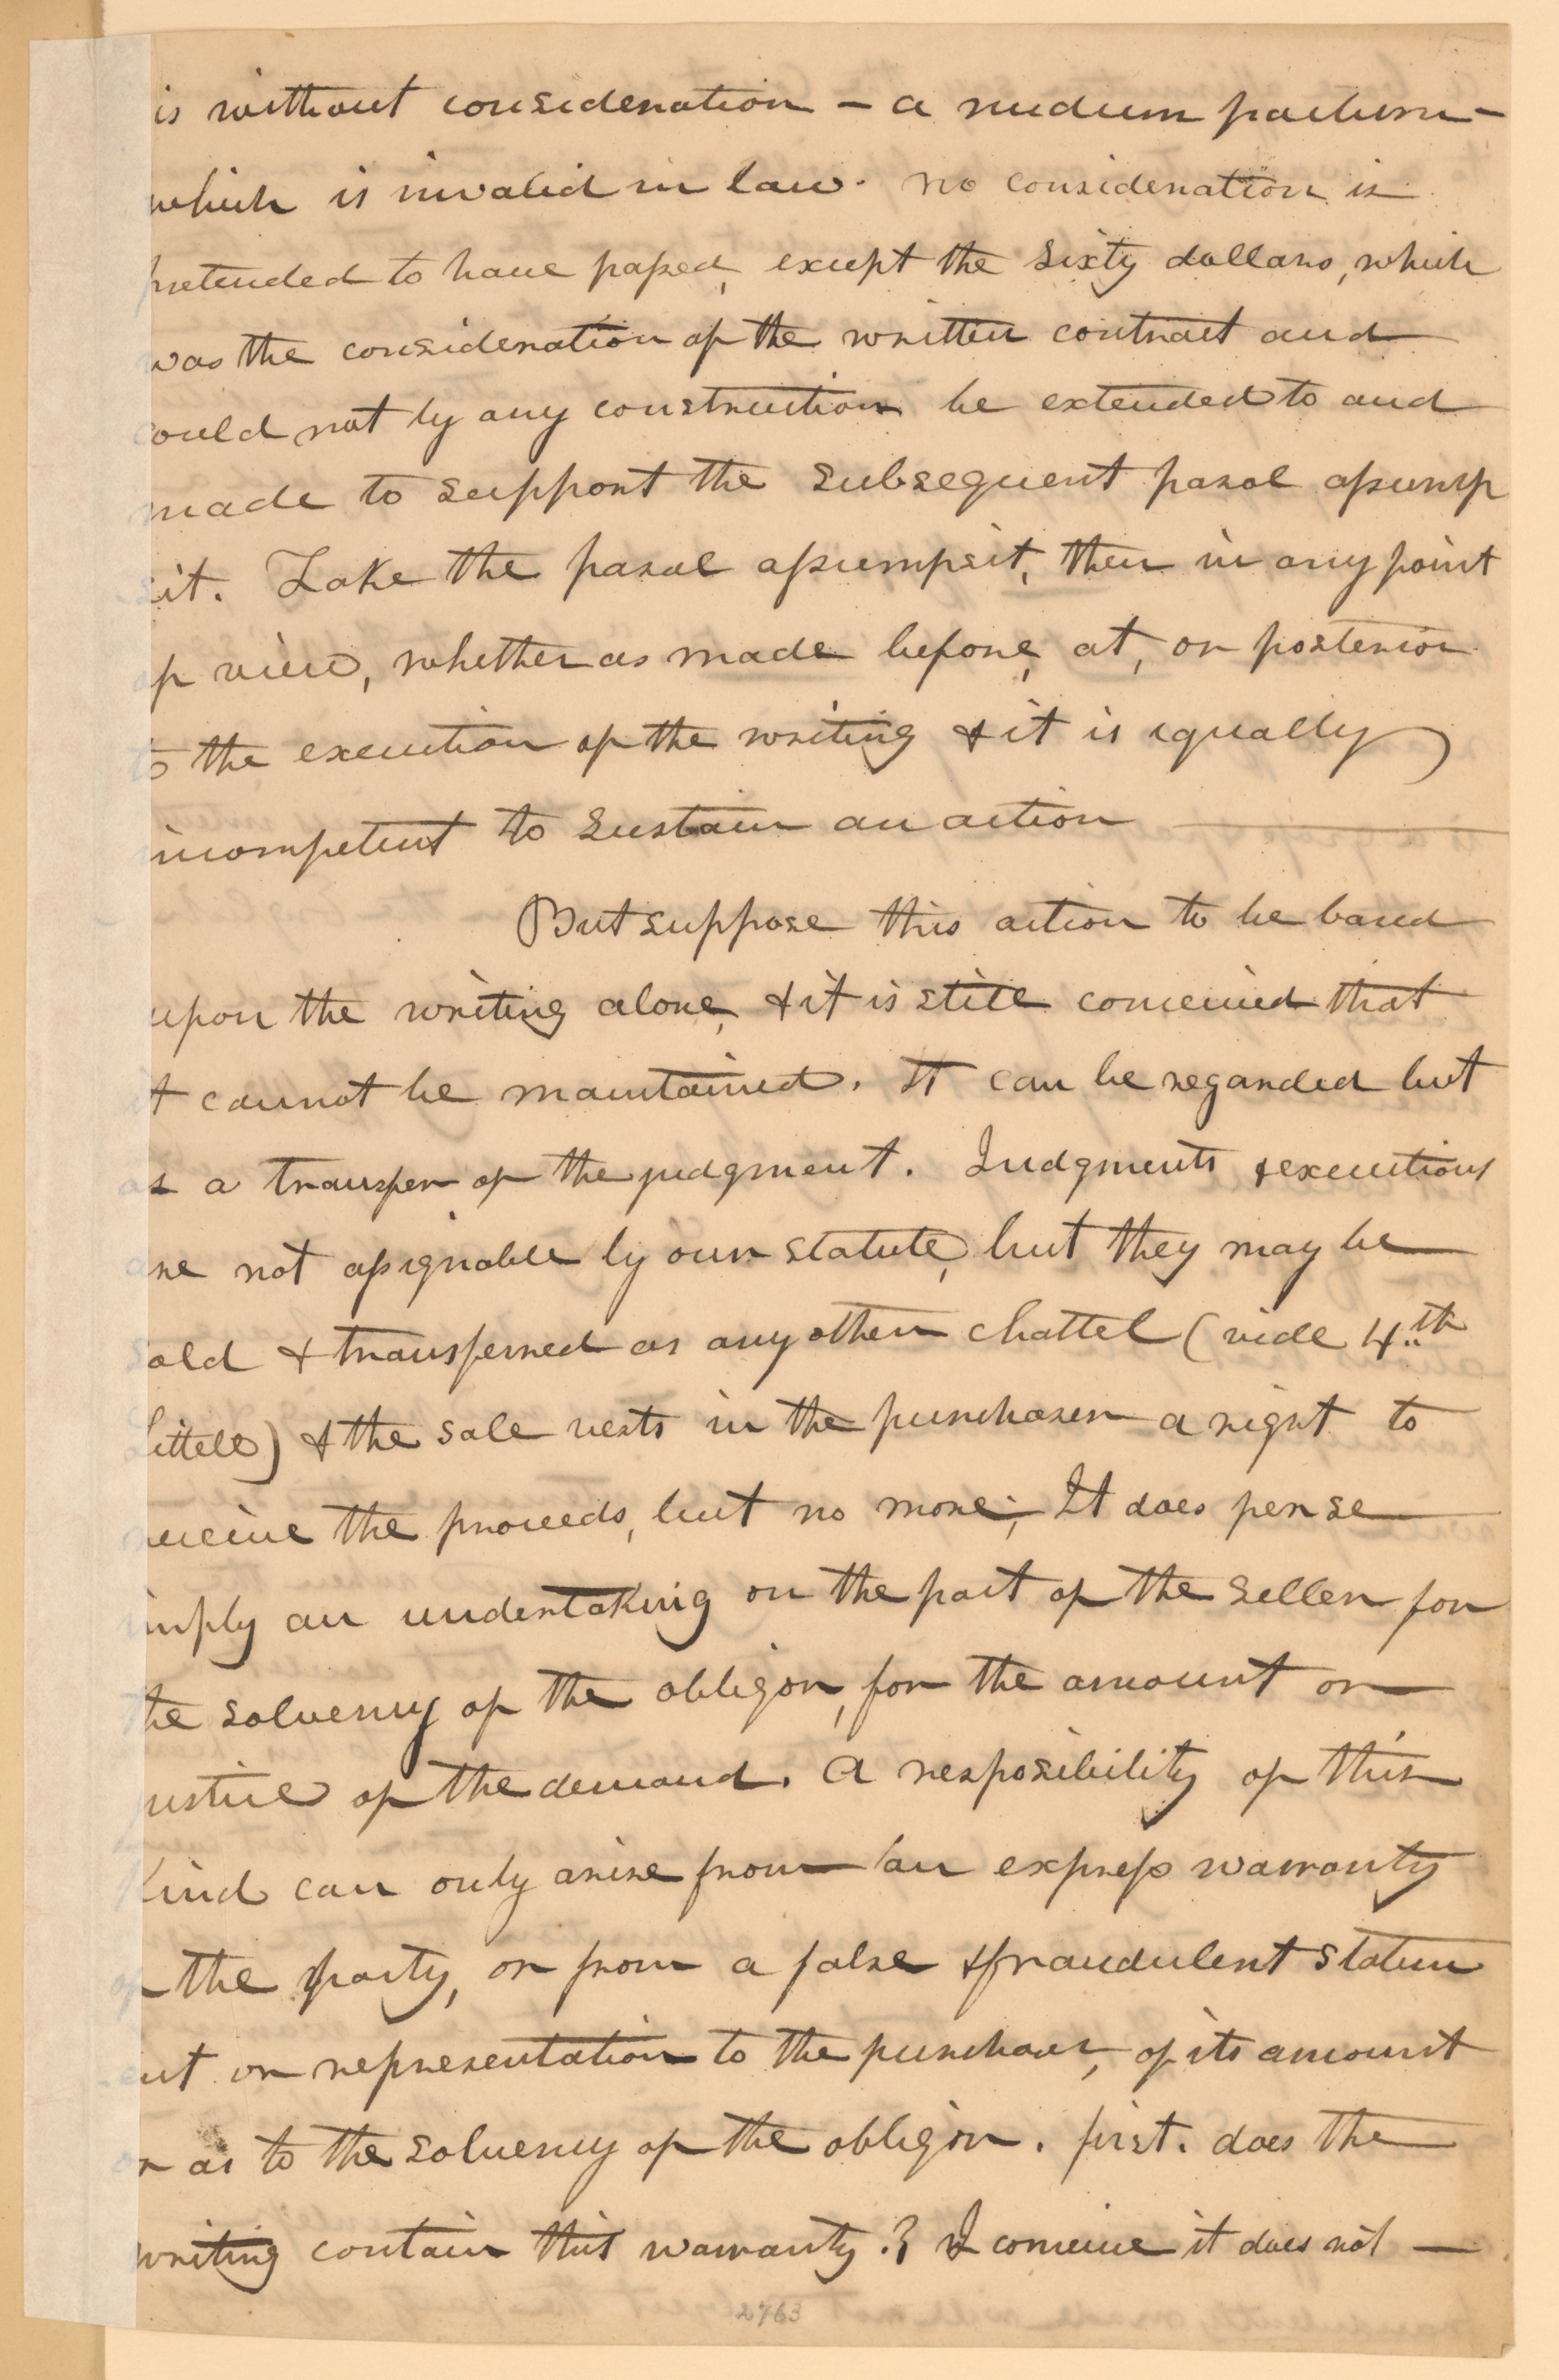 is without consideration – a nudum pactum –
which is invalid in law. no consideration is
pretended to have passed, except the sixty dollars, which
was the consideration of the written contract and
could not by any construction be extended to and
made to support the subsequent parol assump
sit. Take the parol assumpsit, then in any point
of view, whether as made before, at, or posterior
to the execution of the writing & it is equally
incompetent to sustain an action
But suppose this action to be based
upon the writing alone, & it is still conceived that
it cannot be maintained. It can be regarded but
as a transfer of the judgment. Judgments & executions
are not assignable by our statute, but they may be
sold & transferred as any other chattel (vide 4th
Littell) & the sale vests in the purchaser a right to
receive the proceeds, but no more; It does per se
imply an undertaking on the part of the seller for
the solvency of the obligor, for the amount or
justice of the demand. A resposibility of this
kind can only arise from an express warranty
of the party, or from a false & fraudulent statem
ent or representation to the purchaser, of its amount
or as to the solvency of the obligor. first. does the
writing contain this warranty.? I conceive it does not —
2763